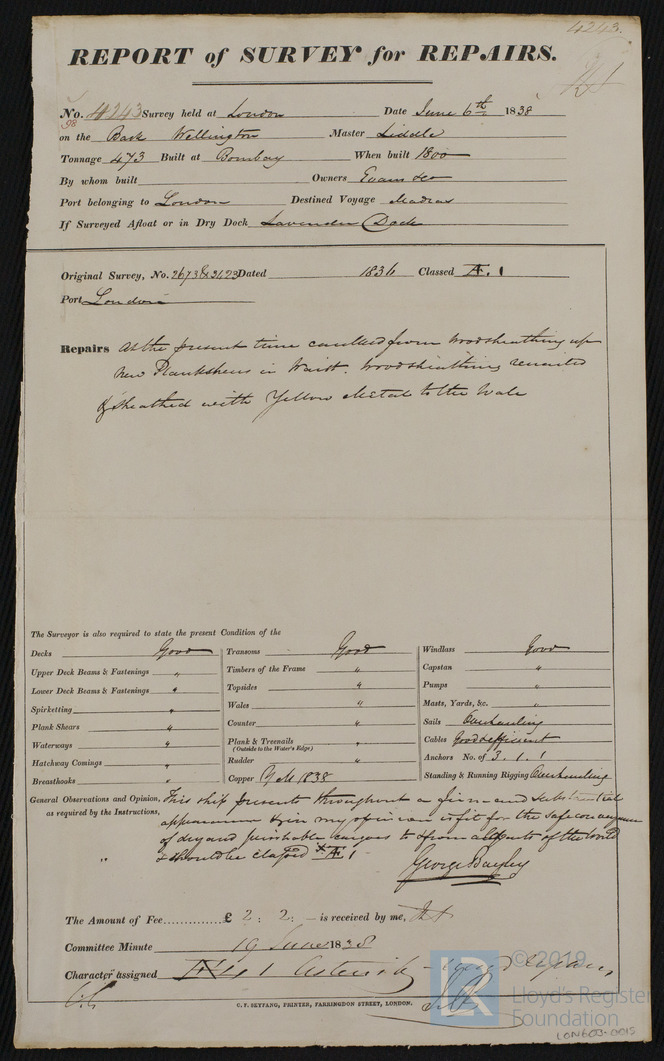 4243.
REPORT of SURVEY for REPAIRS.
No. 4243 Survey held at London Date June 6th 1838
98
on the Bark Wellington Master Liddle
Tonnage 473 Built at Bombay When built 1800
By whom built Owners Evans &Co
Port belonging to London Destined Voyage Madras
If Surveyed Afloat or in Dry Dock Lavender Dock
Original Survey, No. 2673 & 3423 Dated 1836 Classed Æ. 1
Port London
Repairs At the present time caulked from Woodsheathing up
New Planksheers in Waist. Woodsheathing renewed
& sheathed with Yellow Metal to the Wale
The Surveyor is also required to state the present Condition of the
Decks Good
Upper Deck Beams & Fastenings "
Lower Deck Beams & Fastenings "
Spirketting "
Plank Shears "
Waterways "
Hatchway Comings "
Breasthooks "
Transoms Good
Timbers of the Frame "
Topsides "
Wales "
Counter "
Plank & Treenails "
(Outside to the Water's Edge)
Rudder "
Copper YM 1838
Windlass Good
Capstan "
Pumps "
Masts, Yards, &c. "
Sails Overhauling
Cables Good & efficient
Anchors No. of 3. 1. 1
Standing & Running Rigging Overhauling
General Observations and Opinion, This ship presents throughout a firm and substantial
as required by the Instructions, appearance & is in my opinion fit for the safe conveyance
of dry and perishable cargoes to & from all parts of the world
" & should be classed Æ 1
George Bayley
The Amount of Fee............... £ 2 : 2 : – is received by me,
Committee Minute 19 June 1838
Character assigned Æ 1
C. F. SEYFANG, PRINTER, FARRINGDON STREET, LONDON.
LR
© 2019
Lloyd's Register
Foundation
LON603-0015